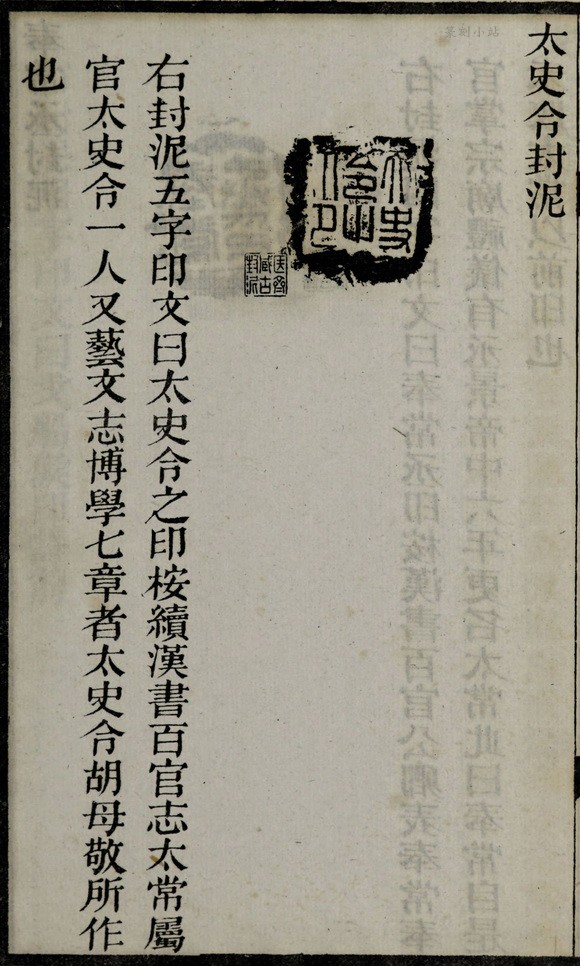 太史令封泥
太史
令之
印
右封泥五字印文曰太史令之印桉續漢書百官志太常屬
官太史令一人又藝文志博學七章者太史令胡母敬所作
也
篆刻小站